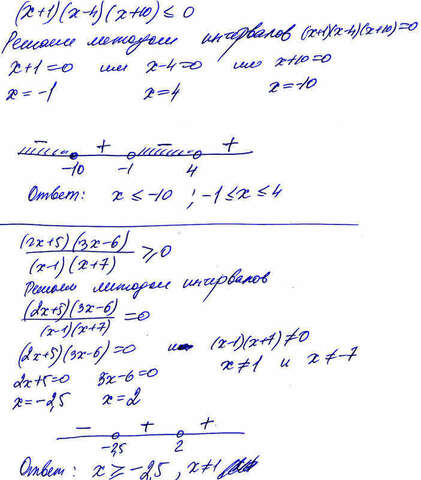 (x+1)(x-4)(x+10) ≤ 0
Решаем методом интервалов (x+1)(x-4)(x+10)=0
x+1=0 или x-4=0 или x+10=0
x=-1 x=4 x=-10
- + - +
-10 -1 4
Ответ: x ≤ -10 ; -1 ≤ x ≤ 4
(2x+5)(3x-6)
(x-1)(x+7) ≥ 0
Решаем методом интервалов
(2x+5)(3x-6)
(x-1)(x+7) = 0
(2x+5)(3x-6)=0 и (x-1)(x+7)≠0
2x+5=0 3x-6=0 x≠1 и x≠-7
x=-2,5 x=2
- + +
-2,5 2
Ответ: x ≥ -2,5, x≠1